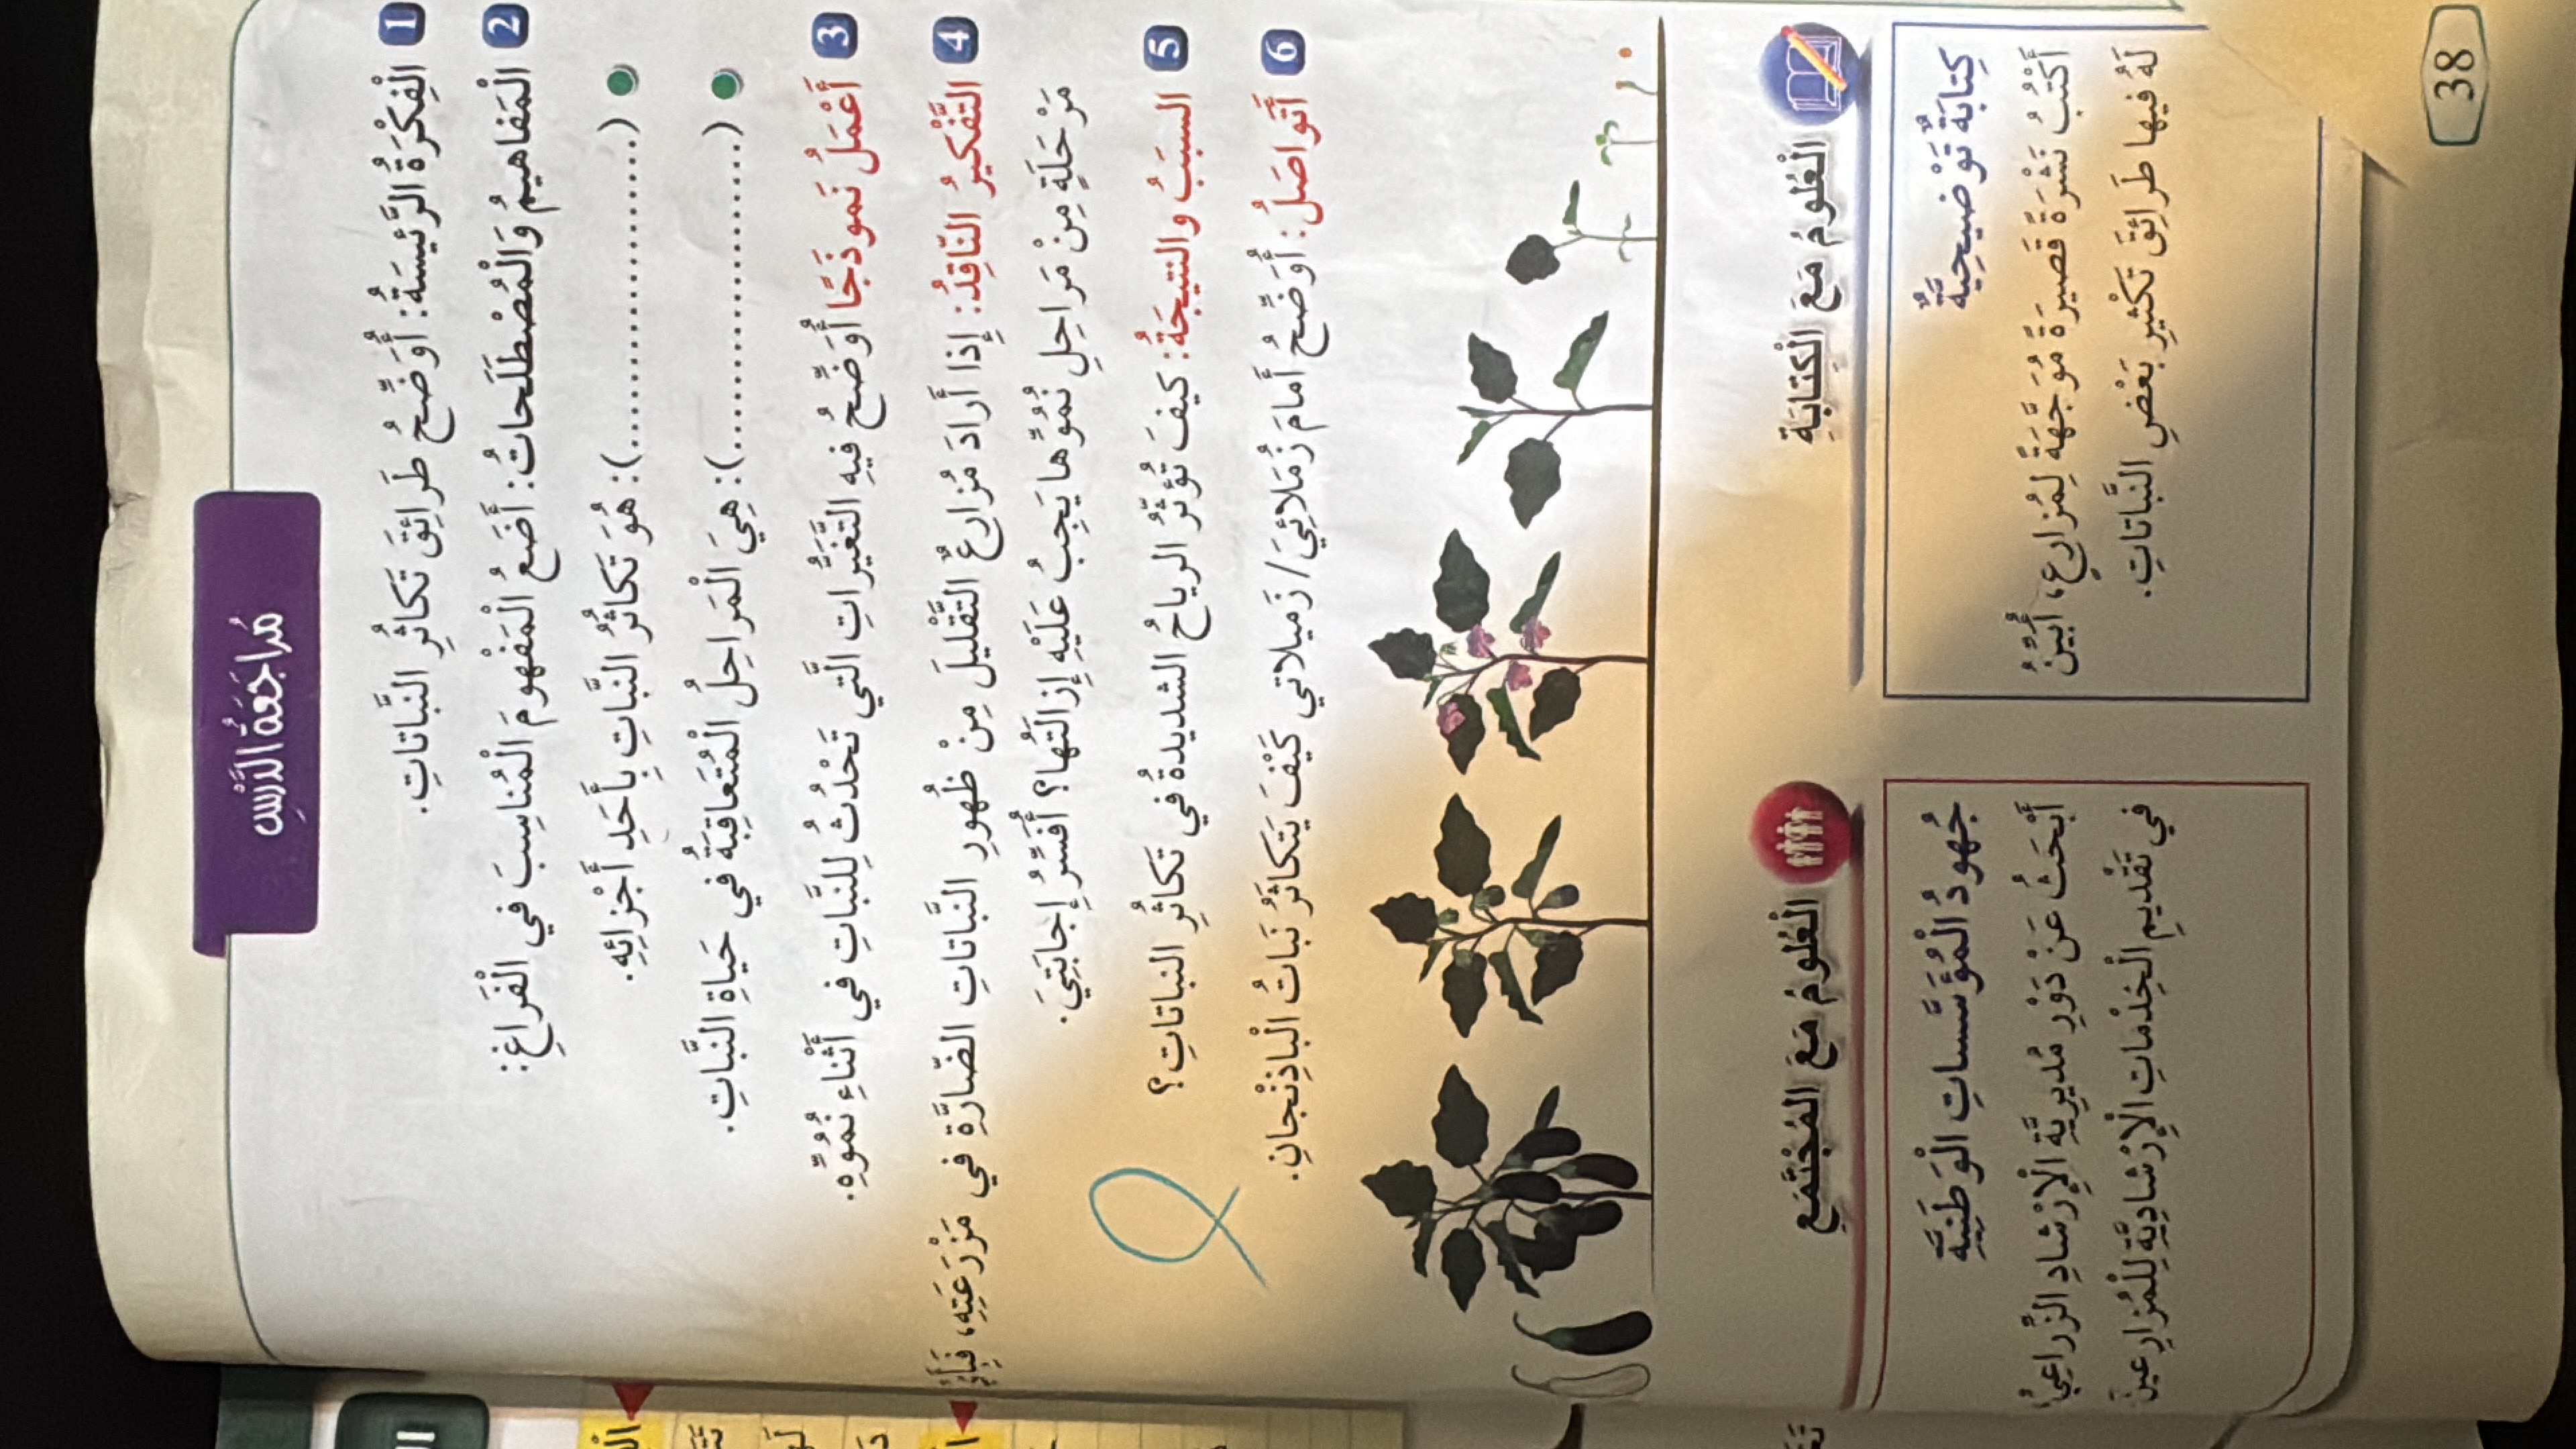 مُراجَعَةُ الدَّرْسِ
1 الْفِكْرَةُ الرَّئيسَةُ: أُوَضِّحُ طَرائِقَ تَكاثُرِ النَّباتاتِ.
2 الْمَفاهيمُ وَالْمُصْطَلَحاتُ: أَضَعُ الْمَفْهومَ الْمُناسِبَ في الْفَراغِ:
(..............................): هُوَ تَكاثُرُ النَّباتِ بِأَحَدِ أَجْزائِهِ.
(..............................): هِيَ الْمَراحِلُ الْمُتَعاقِبَةُ في حَياةِ النَّباتِ.
3 أَعْمَلُ نَموذَجًا أُوَضِّحُ فيهِ التَّغَيُّراتِ الَّتي تَحْدُثُ لِلنَّباتِ في أَثْناءِ نُمُوِّهِ.
4 التَّفْكيرُ النّاقِدُ: إِذا أَرادَ مُزارِعٌ التَّقْليلَ مِنْ ظُهورِ النَّباتاتِ الضّارَّةِ في مَزْرَعَتِهِ، فَأَيُّ
مَرْحَلَةٍ مِنْ مَراحِلِ نُمُوِّها يَجِبُ عَلَيْهِ إِزالَتُها؟ أُفَسِّرُ إِجابَتِيَ.
5 السببُ والنتيجَةُ: كيفَ تُؤثّرُ الرياحُ الشديدةُ في تَكاثُرِ النباتاتِ؟
6 أَتَواصَلُ: أُوَضِّحُ أَمامَ زُمَلائِيَ/ زَميلاتي كَيْفَ يَتَكاثَرُ نَباتُ الْباذِنْجانِ.
الْعُلومُ مَعَ الْكِتابَةِ
كِتابَةٌ تَوْضيحِيَّةٌ
أَكْتُبُ نَشْرَةً قَصيرَةً مُوَجَّهَةً لِمُزارِعٍ، أُبَيِّنُ
لَهُ فيها طَرائِقَ تَكْثيرِ بَعْضِ النَّباتاتِ.
الْعُلومُ مَعَ الْمُجْتَمَعِ
جُهودُ الْمُؤَسَّساتِ الْوَطَنِيَّةِ
أَبْحَثُ عَنْ دَوْرِ مُديرِيَّةِ الْإِرْشادِ الزِّراعِيِّ
في تَقْديمِ الْخِدْماتِ الْإِرْشادِيَّةِ لِلْمُزارِعينَ
38